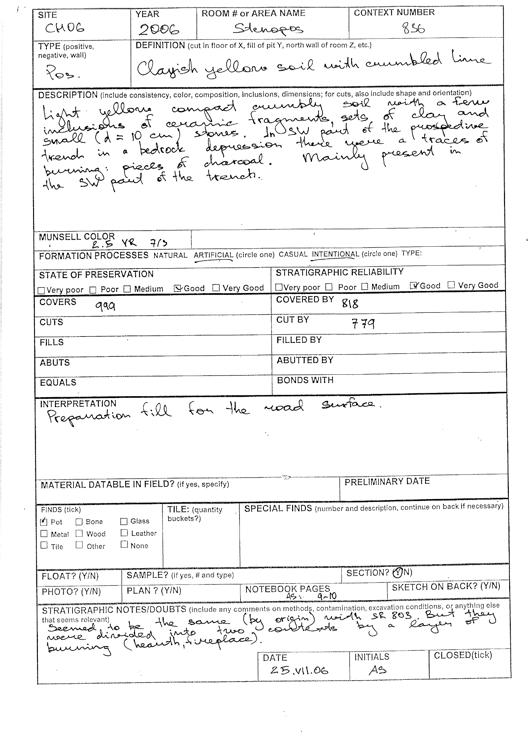 SITE YEAR ROOM # or AREA NAME CONTEXT NUMBER
CH06 2006 Stenopos 856
TYPE (positive, negative, wall) DEFINITION (cut in floor of X, fill of pit Y, north wall of room Z, etc.)
Pos. Clayish yellow soil with crumbled lime
DESCRIPTION (include consistency, color, composition, inclusions, dimensions; for cuts, also include shape and orientation)
Light yellow compact crumbly soil with a few
inclusions of ceramic fragments, sets of clay and
small (d = 10 cm) stones. In SW part of the prospedine
trench in a bedrock depression there were a traces of
burning: pieces of charcoal. Mainly present in
the SW part of the trench.
MUNSELL COLOR
2.5 YR 7/3
FORMATION PROCESSES NATURAL ARTIFICIAL (circle one) CASUAL INTENTIONAL (circle one) TYPE:
STATE OF PRESERVATION STRATIGRAPHIC RELIABILITY
Very poor Poor Medium Good Very Good Very poor Poor Medium Good Very Good
COVERS 999 COVERED BY 818
CUTS CUT BY 779
FILLS FILLED BY
ABUTS ABUTTED BY
EQUALS BONDS WITH
INTERPRETATION
Preparation fill for the road surface.
MATERIAL DATABLE IN FIELD? (if yes, specify) PRELIMINARY DATE
FINDS (tick) TILE: (quantity buckets?) SPECIAL FINDS (number and description, continue on back if necessary)
Pot Bone Glass
Metal Wood Leather
Tile Other None
FLOAT? (Y/N) SAMPLE? (if yes, # and type) SECTION? (Y/N)
PHOTO? (Y/N) PLAN? (Y/N) NOTEBOOK PAGES SKETCH ON BACK? (Y/N)
AS: 9-10
STRATIGRAPHIC NOTES/DOUBTS (include any comments on methods, contamination, excavation conditions, or anything else
that seems relevant)
Seemed to be the same (by origin) with SR 803. But they
were divided into two contexts by a layer of
burning (hearth, fireplace).
DATE INITIALS CLOSED(tick)
25.VII.06 AS